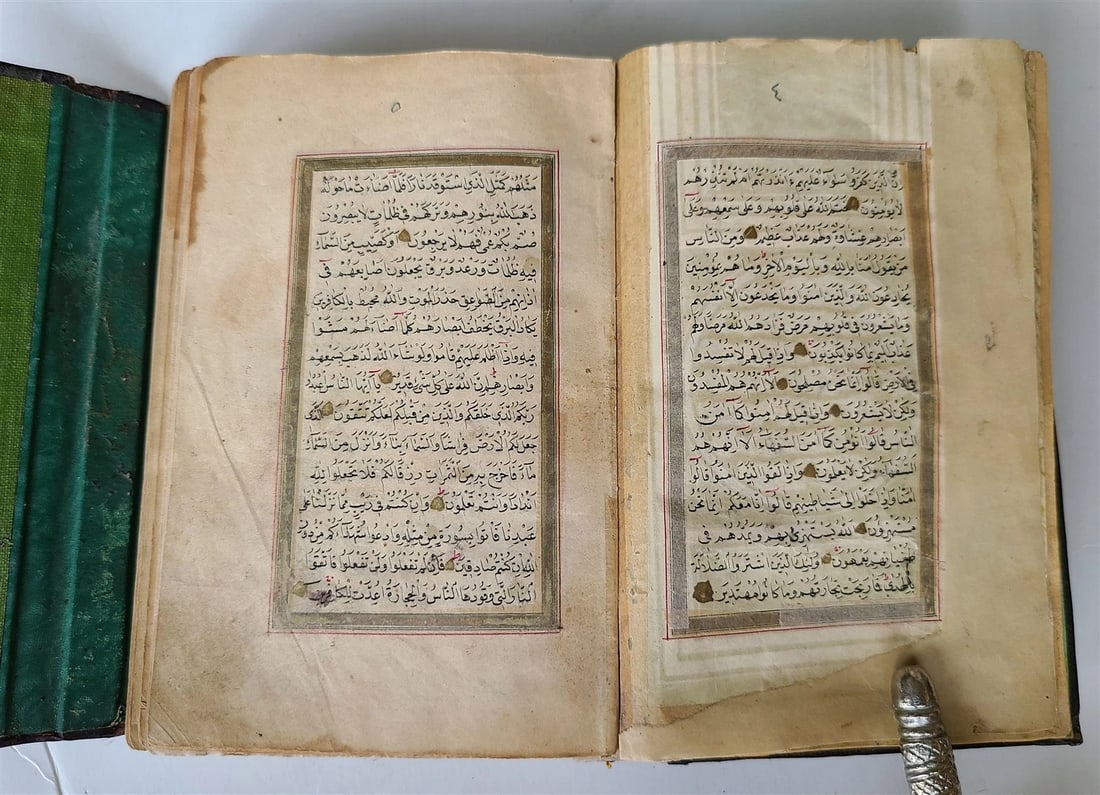 ٤
إِنَّ الَّذِينَ كَفَرُوا سَوَاءٌ عَلَيْهِمْ ءَاَنْذَرْتَهُمْ اَمْ لَمْ تُنْذِرْهُمْ
لَا يُؤْمِنُونَ خَتَمَ اللّٰهُ عَلٰى قُلُوبِهِمْ وَعَلٰى سَمْعِهِمْ وَعَلٰى
اَبْصَارِهِمْ غِشَاوَةٌ وَلَهُمْ عَذَابٌ عَظِيمٌ وَمِنَ النَّاسِ
مَنْ يَقُولُ اٰمَنَّا بِاللّٰهِ وَبِالْيَوْمِ الْاٰخِرِ وَمَا هُمْ بِمُؤْمِنِينَ
يُخَادِعُونَ اللّٰهَ وَالَّذِينَ اٰمَنُوا وَمَا يَخْدَعُونَ اِلَّا اَنْفُسَهُمْ
وَمَا يَشْعُرُونَ فِي قُلُوبِهِمْ مَرَضٌ فَزَادَهُمُ اللّٰهُ مَرَضًا وَلَهُمْ
عَذَابٌ اَلِيمٌ بِمَا كَانُوا يَكْذِبُونَ وَاِذَا قِيلَ لَهُمْ لَا تُفْسِدُوا
فِي الْاَرْضِ قَالُوا اِنَّمَا نَحْنُ مُصْلِحُونَ اَلَا اِنَّهُمْ هُمُ الْمُفْسِدُونَ
وَلٰكِنْ لَا يَشْعُرُونَ وَاِذَا قِيلَ لَهُمْ اٰمِنُوا كَمَا اٰمَنَ
النَّاسُ قَالُوا اَنُؤْمِنُ كَمَا اٰمَنَ السُّفَهَاءُ اَلَا اِنَّهُمْ هُمُ
السُّفَهَاءُ وَلٰكِنْ لَا يَعْلَمُونَ وَاِذَا لَقُوا الَّذِينَ اٰمَنُوا قَالُوا
اٰمَنَّا وَاِذَا خَلَوْا اِلٰى شَيَاطِينِهِمْ قَالُوا اِنَّا مَعَكُمْ اِنَّمَا نَحْنُ
مُسْتَهْزِؤُنَ اَللّٰهُ يَسْتَهْزِئُ بِهِمْ وَيَمُدُّهُمْ فِي
طُغْيَانِهِمْ يَعْمَهُونَ اُولٰئِكَ الَّذِينَ اشْتَرَوُا الضَّلَالَةَ
بِالْهُدٰى فَمَا رَبِحَتْ تِجَارَتُهُمْ وَمَا كَانُوا مُهْتَدِينَ
٥
مَثَلُهُمْ كَمَثَلِ الَّذِي اسْتَوْقَدَ نَارًا فَلَمَّا اَضَاءَتْ مَا حَوْلَهُ
ذَهَبَ اللّٰهُ بِنُورِهِمْ وَتَرَكَهُمْ فِي ظُلُمَاتٍ لَا يُبْصِرُونَ
صُمٌّ بُكْمٌ عُمْيٌ فَهُمْ لَا يَرْجِعُونَ اَوْ كَصَيِّبٍ مِنَ السَّمَاءِ
فِيهِ ظُلُمَاتٌ وَرَعْدٌ وَبَرْقٌ يَجْعَلُونَ اَصَابِعَهُمْ فِي
اٰذَانِهِمْ مِنَ الصَّوَاعِقِ حَذَرَ الْمَوْتِ وَاللّٰهُ مُحِيطٌ بِالْكَافِرِينَ
يَكَادُ الْبَرْقُ يَخْطَفُ اَبْصَارَهُمْ كُلَّمَا اَضَاءَ لَهُمْ مَشَوْا
فِيهِ وَاِذَا اَظْلَمَ عَلَيْهِمْ قَامُوا وَلَوْ شَاءَ اللّٰهُ لَذَهَبَ بِسَمْعِهِمْ
وَاَبْصَارِهِمْ اِنَّ اللّٰهَ عَلٰى كُلِّ شَيْءٍ قَدِيرٌ يَا اَيُّهَا النَّاسُ اعْبُدُوا
رَبَّكُمُ الَّذِي خَلَقَكُمْ وَالَّذِينَ مِنْ قَبْلِكُمْ لَعَلَّكُمْ تَتَّقُونَ اَلَّذِي
جَعَلَ لَكُمُ الْاَرْضَ فِرَاشًا وَالسَّمَاءَ بِنَاءً وَاَنْزَلَ مِنَ السَّمَاءِ
مَاءً فَاَخْرَجَ بِهِ مِنَ الثَّمَرَاتِ رِزْقًا لَكُمْ فَلَا تَجْعَلُوا لِلّٰهِ
اَنْدَادًا وَاَنْتُمْ تَعْلَمُونَ وَاِنْ كُنْتُمْ فِي رَيْبٍ مِمَّا نَزَّلْنَا عَلٰى
عَبْدِنَا فَاْتُوا بِسُورَةٍ مِنْ مِثْلِهِ وَادْعُوا شُهَدَاءَكُمْ مِنْ دُونِ
اللّٰهِ اِنْ كُنْتُمْ صَادِقِينَ فَاِنْ لَمْ تَفْعَلُوا وَلَنْ تَفْعَلُوا فَاتَّقُوا
النَّارَ الَّتِي وَقُودُهَا النَّاسُ وَالْحِجَارَةُ اُعِدَّتْ لِلْكَافِرِينَ